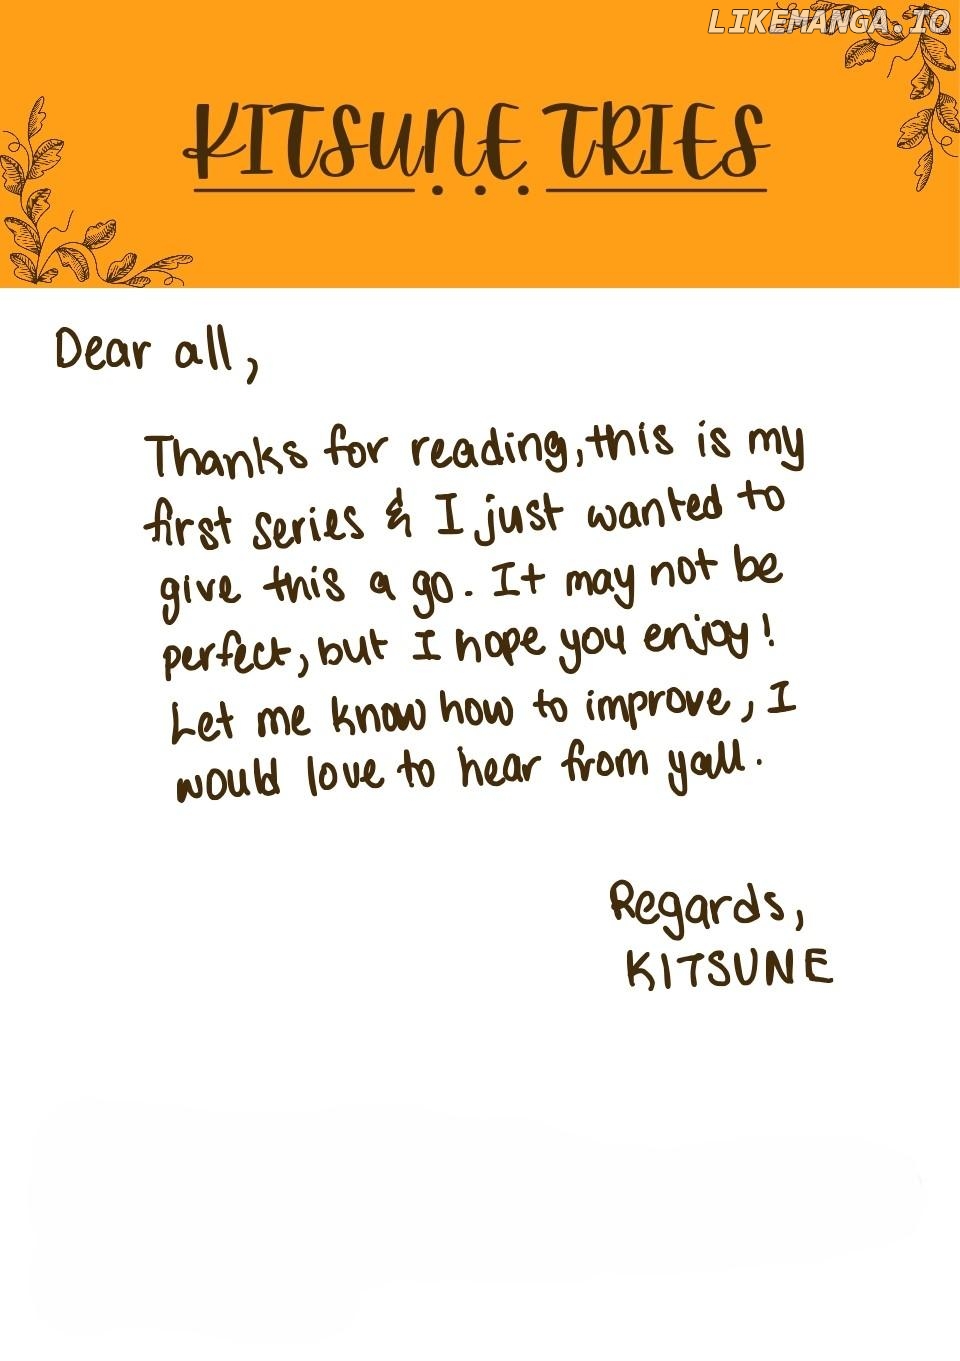 LIKEMANGA.IO
KITSUNE TRIES
Dear all,
Thanks for reading, this is my
first series & I just wanted to
give this a go. It may not be
perfect, but I hope you enjoy!
Let me know how to improve, I
would love to hear from yall.
Regards,
KITSUNE